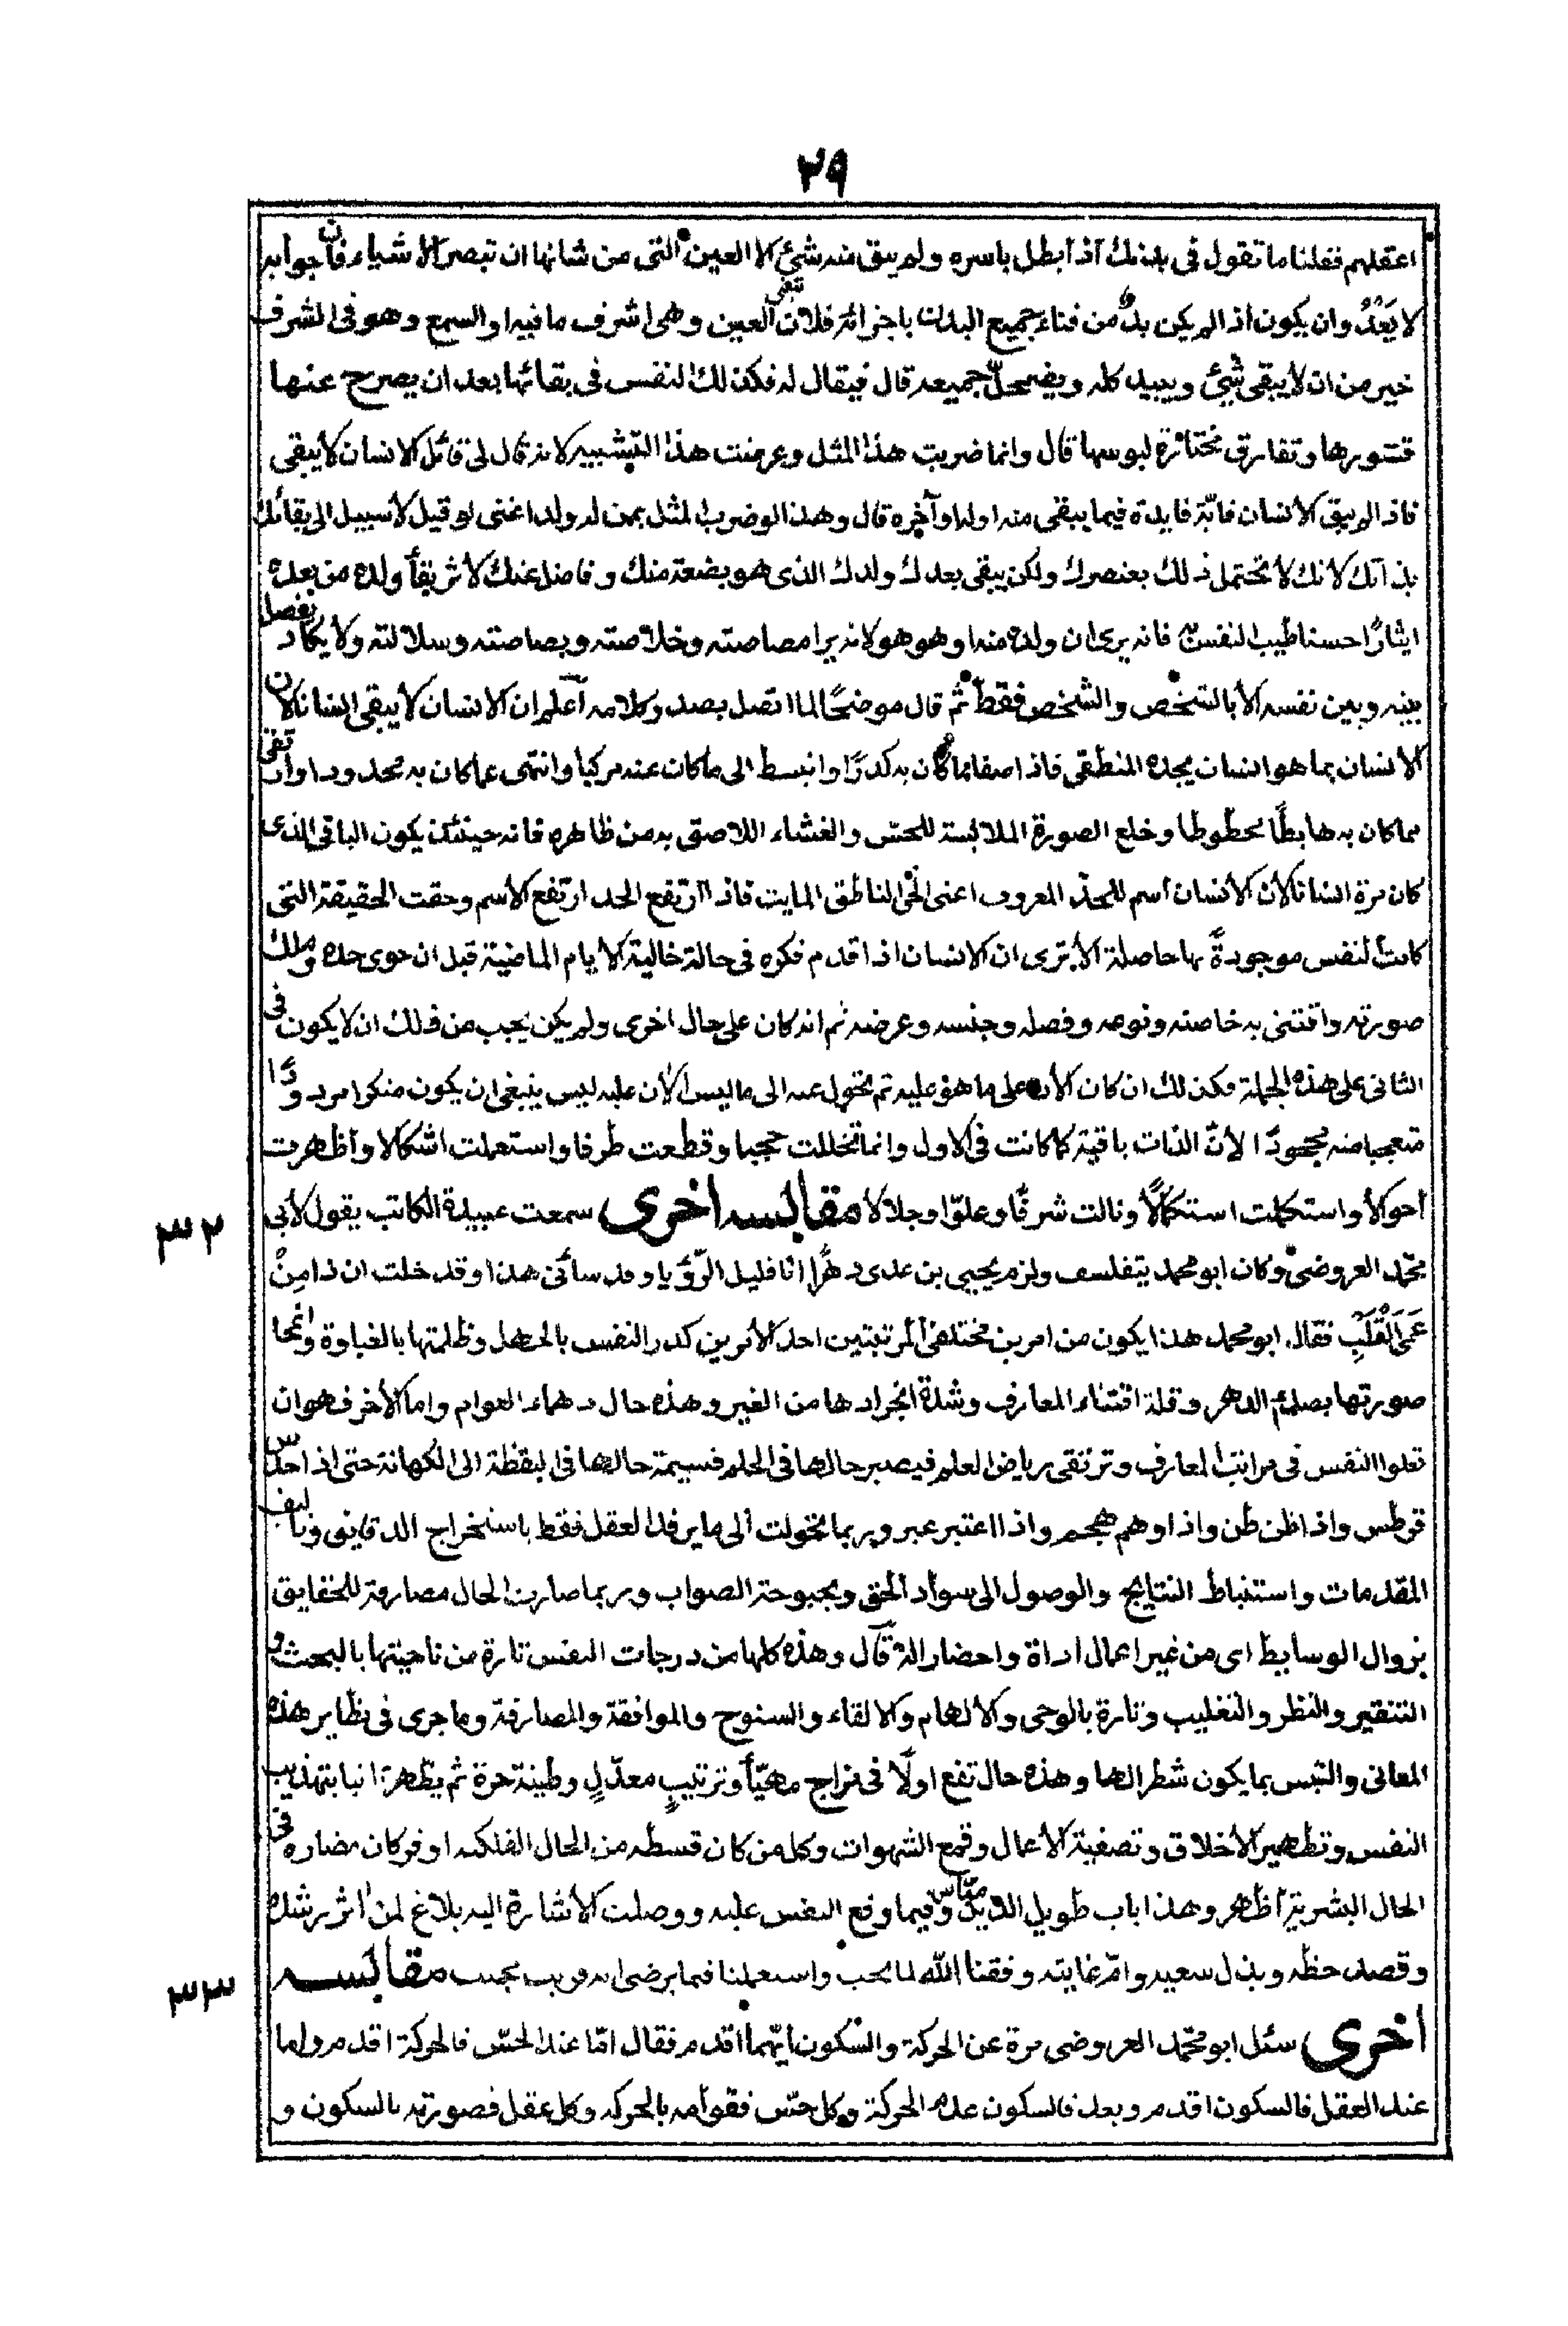 ٢٩
اعقلهم فقلنا ما تقول في بدنك اذا بطل باسره ولم يبق منه شئ الا العين التي من شانها ان تبصر الاشياء فان جوابه
لا يعدُ وان يكون اذا لم يكن بدٌ من فناء جميع البدن باجزائه فلان تبقى العين وهي اشرف ما فيه او السمع وهو في الشرف
خير من ان لا يبقى شئ ويبيد كله ويضمحلّ جميعه قال فيقال له فكذلك النفس في بقائها بعد ان يصرح عنها
قشورها وتفارق مختارة لبوسها قال وانما ضربت هذا المثل وعرضت هذا التشبيه لانه قال لي قائل الانسان لا يبقى
فاذا لم يبق الانسان فايّة فايدة فيما يبقى منه اوله او آخره قال وهذا لو ضرب المثل بمن له ولد اعني لو قيل لا سبيل الى بقائك
بذاتك لانك لا تحتمل ذلك بعنصرك ولكن يبقى بعدك ولدك الذي هو بضعة منك وفاضل عنك لآثر بقاء ولده من بعده
ايثارًا حسنا طيب النفس به فانه يرى ان ولده منه او هو هو لانه يرا مصاصته وخلاصته وبصاصته وسلالته ولا يكاد يفصل
بينه وبين نفسه الا بالتشخص والشخص فقط ثم قال موضحًا لما اتصل بصدر كلامه أعلم ان الانسان لا يبقى انسانا لان
الانسان بما هو انسان يحده المنطقي فاذا صفا مما كان به كدرًا وانبسط الى ما كان عنه مركبا وانتهى عما كان به محدودا وارتقى
مما كان به هابطًا محطوطا وخلع الصورة الملابسة للحس والغشاء اللاصق به من ظاهره فانه حينئذ يكون الباقي الذي
كان مرة انسانا لان الانسان اسم للحدّ المعروف اعني الحي الناطق المايت فاذا ارتفع الحد ارتفع الاسم وحقت الحقيقة التي
كانت لنفس موجودةً بها حاصلة الا ترى ان الانسان اذا قدم فكره في حالة خالية الايام الماضية قبل ان حوى حده وملك
صورته واقتنى به خاصته ونوعه وفصله وجنسه وعرضه ثم انه كان على حال اخرى ولم يكن يجب من ذلك ان لا يكون في
الثاني على هذه الجملة فكذلك ان كان الان على ما هو عليه ثم تحول عنه الى ما ليس الان عليه ليس ينبغي ان يكون منكرا مردودًا
متعجبا منه مجحودًا لانّ الذات باقية كما كانت في الاول وانما تخللت حجبا وقطعت طرفا واستعملت اشكالا واظهرت
احوالا واستكملت استكمالًا ونالت شرفًا وعلوّا وجلالا مقابسه اخرى سمعت عبيدة الكاتب يقول لابي
٣٢
محمّد العروضي وكان ابو محمد يتفلسف ولزم يحيى بن عدي دهرًا انا قليل الرؤيا وقد سائني هذا وقد خلت ان ذا مِنْ
عَمَى الْقَلْبِ فقال ابو محمد هذا يكون من امرين مختلفي المرتبتين احد الامرين كدر النفس بالجهل وظلمتها بالغباوة وانمحا
صورتها بصدئ الدهر وقلة اقتناء المعارف وشدة انجرادها من الغير وهذه حال دهماء العوام واما الاخر فهو ان
تعلوا النفس في مراتب المعارف وترتقي رياض العلم فيصير حالها في الحلم فسيمة حالها في اليقظة الى الكهانة حتى اذا حدس
قرطس واذا ظن طن واذا وهم هجم واذا اعتبر عبر وربما تحولت الى ما يرفد العقل فقط باستخراج الدقايق وتاليف
المقدمات واستنباط النتايج والوصول الى سواد الحق وبحبوحة الصواب وربما صارت الحال مصادفة للحقايق
بزوال الوسايط اي من غير اعمال اداة واحضار الة قال وهذه كلها من درجات النفس تارة من ناحيتها بالبحث و
التنقير والنظر والتغليب وتارة بالوحي والالهام والالقاء والسنوح والموافقة والمصادفة وما جرى في نظاير هذه
المعاني والتبس بما يكون شطرا لها وهذه حال تقع اولًا في مزاج مهيّأ وترتيبٍ معدّلٍ وطينة حرة ثم يظهر ثانيا بتهذيب
النفس وتطهير الاخلاق وتصفية الاعمال وقمع الشهوات وكل من كان قسطه من الحال الفلكيه اوفر كان مضاره في
الحال البشرية اظهر وهذا باب طويل الذيل ميّاس وفيما وقع النفس عليه ووصلت الاشارة اليه بلاغ لمن اثر رشده
وقصد حظه وبذل سعيه وامّ غايته وفقنا الله لما يحب واستعملنا فيما يرضي انه قريب مجيب مقابسه
٣٣
اخرى سئل ابو محمّد العروضي مرة عن الحركة والسكون ايّهما اقدم فقال امّا عند الحسّ فالحركة اقدم واما
عند العقل فالسكون اقدم وبعد فالسكون عدم الحركة وكل حسّ فقوامه بالحركه وكل عقل فصورته بالسكون و